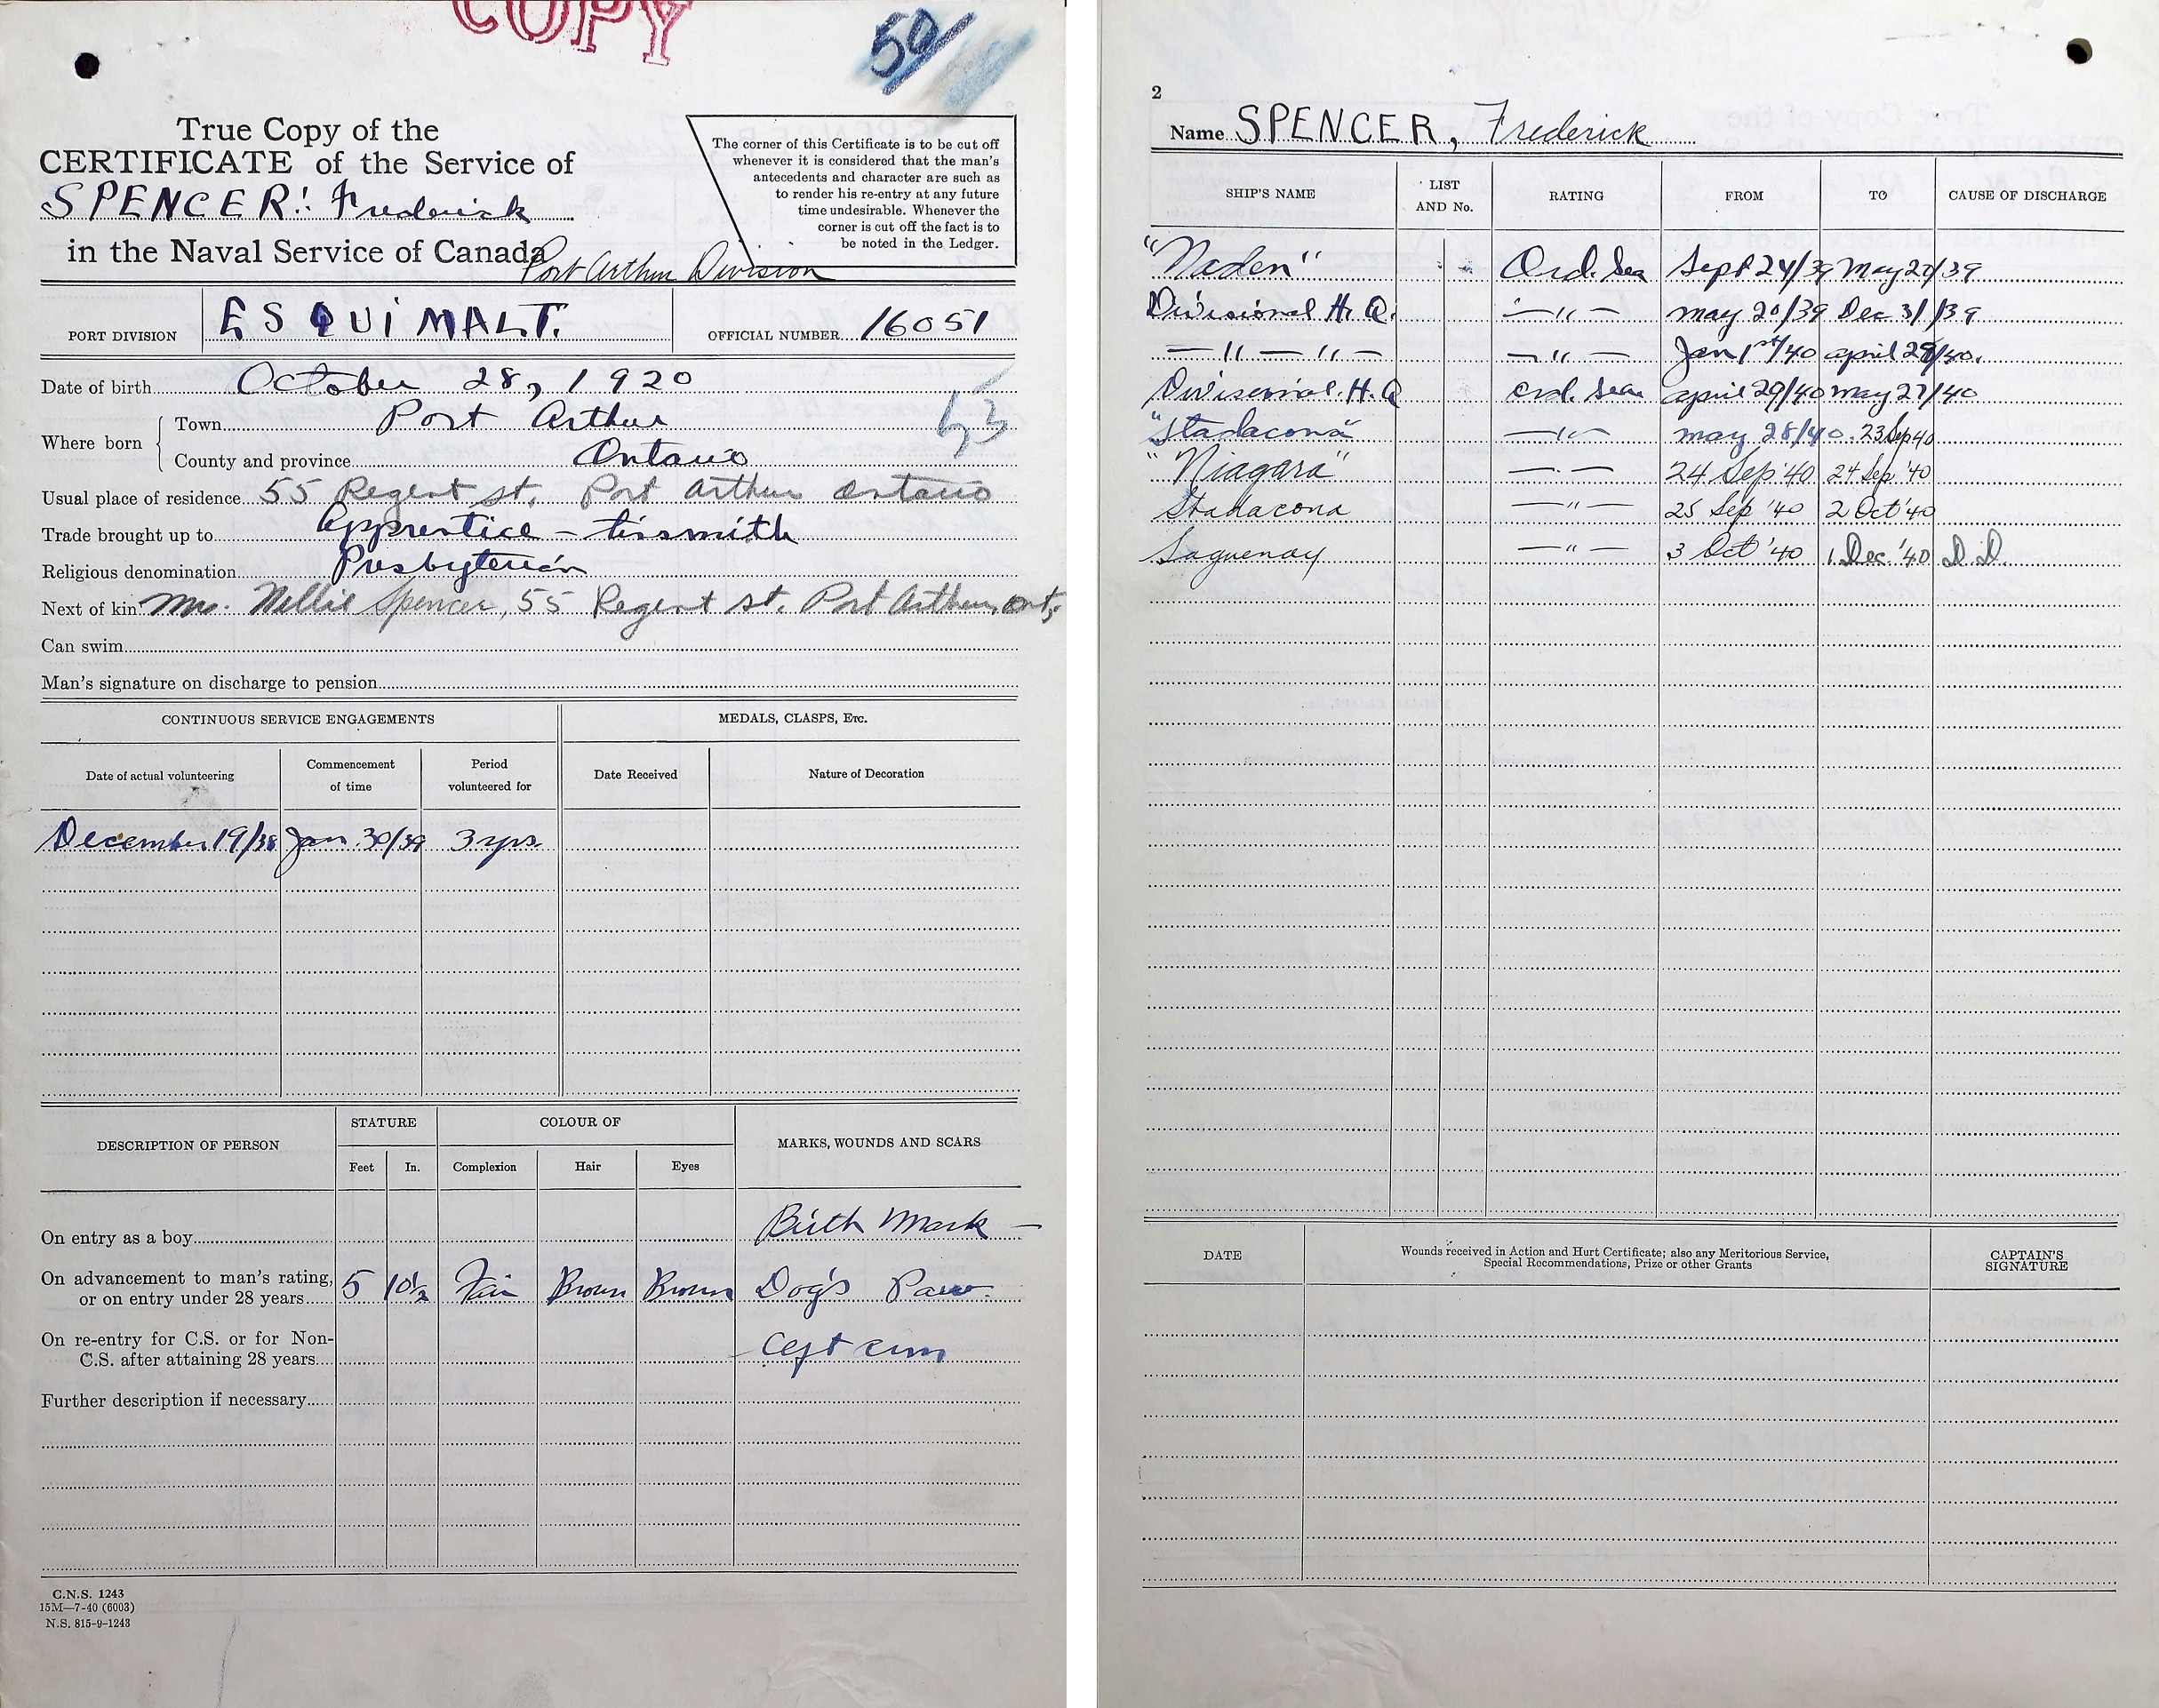 COPY
50
True Copy of the
CERTIFICATE of the Service of
SPENCER: Frederick
in the Naval Service of Canada
Port Arthur Division
The corner of this Certificate is to be cut off
whenever it is considered that the man's
antecedents and character are such as
to render his re-entry at any future
time undesirable. Whenever the
corner is cut off the fact is to
be noted in the Ledger.
PORT DIVISION ESQUIMALT. OFFICIAL NUMBER 16051
Date of birth October 28, 1920
53
Where born Town Port Arthur
County and province Ontario
Usual place of residence 55 Regent st. Port Arthur Ontario
Trade brought up to Apprentice - tinsmith
Religious denomination Presbyterian
Next of kin Mrs. Nellie Spencer, 55 Regent st. Port Arthur, Ont,
Can swim
Man's signature on discharge to pension
CONTINUOUS SERVICE ENGAGEMENTS MEDALS, CLASPS, Etc.
Date of actual volunteering Commencement of time Period volunteered for Date Received Nature of Decoration
December 19/38 Jan 30/39 3 yrs.
DESCRIPTION OF PERSON STATURE COLOUR OF MARKS, WOUNDS AND SCARS
Feet In. Complexion Hair Eyes
On entry as a boy Birth Mark -
On advancement to man's rating, or on entry under 28 years 5 10½ Fair Brown Brown Dog's Paw
On re-entry for C.S. or for Non-C.S. after attaining 28 years Left arm
Further description if necessary
C.N.S. 1243
15M—7-40 (6003)
N.S. 815-9-1243
2
Name SPENCER, Frederick
SHIP'S NAME LIST AND No. RATING FROM TO CAUSE OF DISCHARGE
"Naden" Ord. Sea Sept 24/39 May 20/39
Divisional H.Q. — " — May 20/39 Dec 31/39
— " — " — — " — Jan 1st/40 April 29/40.
Divisional H.Q Ord. Sea April 29/40 May 27/40
"Stadacona" — " — May 28/40. 23 Sep 40
"Niagara" — . — 24 Sep '40 24 Sep '40
Stadacona — " — 25 Sep '40 2 Oct '40
Saguenay — " — 3 Oct '40 1 Dec. '40 D.D.
DATE Wounds received in Action and Hurt Certificate; also any Meritorious Service, Special Recommendations, Prize or other Grants CAPTAIN'S SIGNATURE